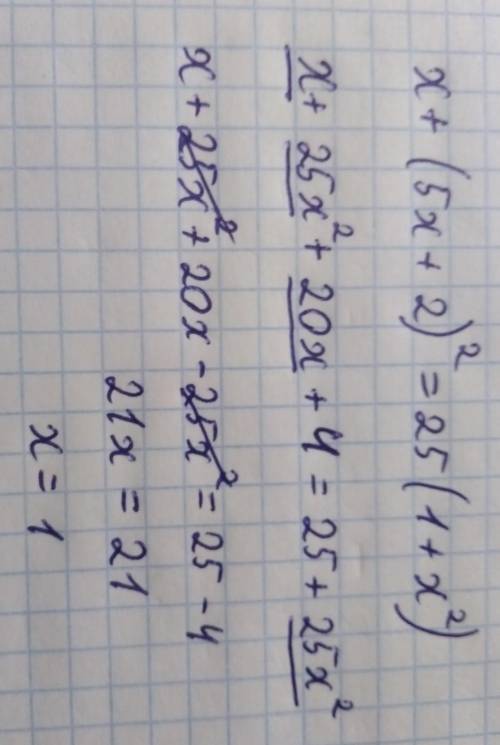 x + (5x + 2)² = 25(1 + x²)
x + 25x² + 20x + 4 = 25 + 25x²
x + 25x² + 20x - 25x² = 25 - 4
21x = 21
x = 1